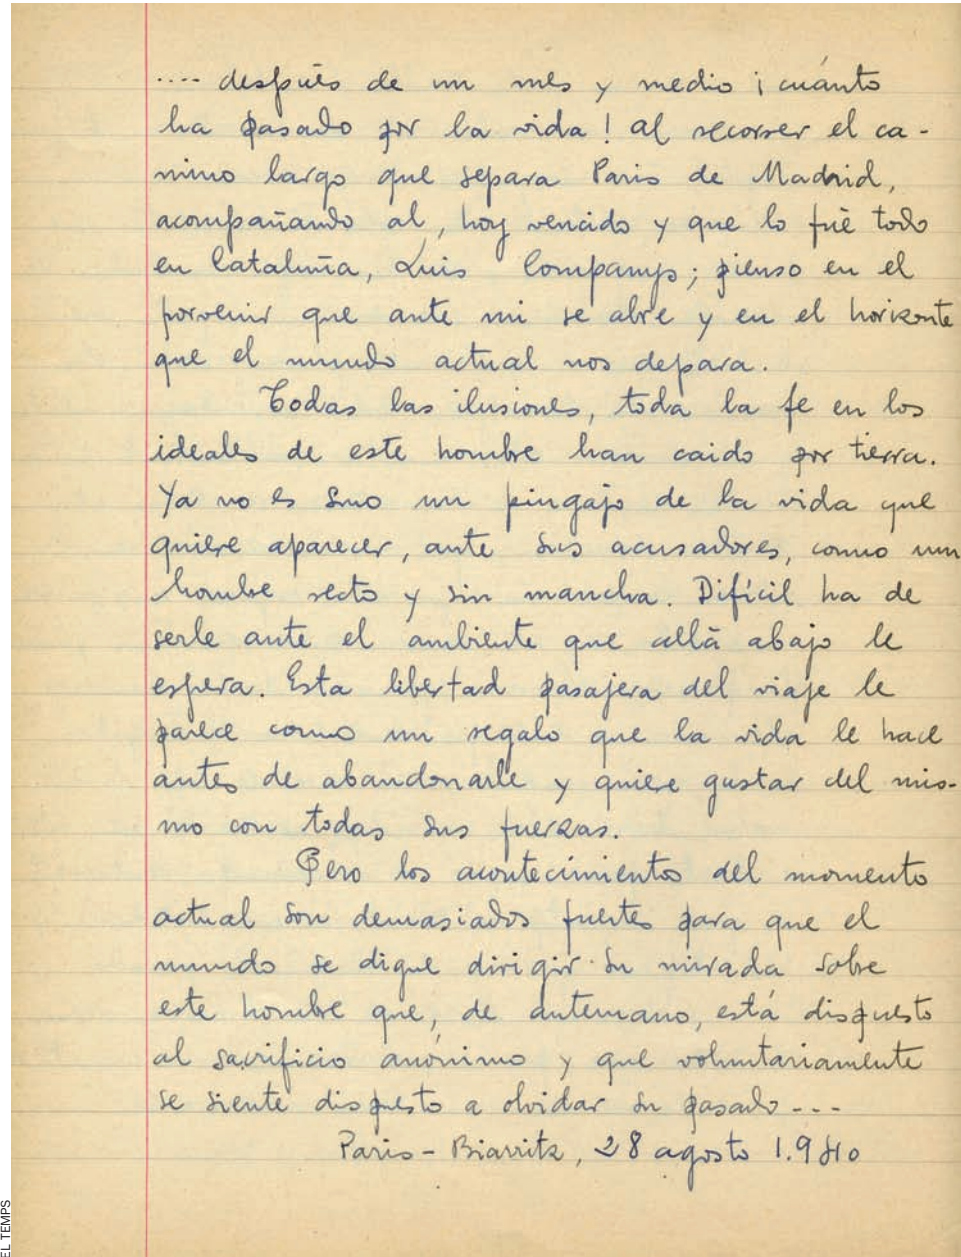 .... después de un mes y medio ¡cuánto
ha pasado por la vida! al recorrer el ca-
mino largo que separa Paris de Madrid,
acompañando al, hoy vencido y que lo fué todo
en Cataluña, Luis Companys; pienso en el
porvenir que ante mi se abre y en el horizonte
que el mundo actual nos depara.
Todas las ilusiones, toda la fe en los
ideales de este hombre han caido por tierra.
Ya no es sino un pingajo de la vida que
quiere aparecer, ante sus acusadores, como un
hombre recto y sin mancha. Difícil ha de
serle ante el ambiente que allá abajo le
espera. Esta libertad pasajera del viaje le
parece como un regalo que la vida le hace
antes de abandonarle y quiere gustar del mis-
mo con todas sus fuerzas.
Pero los acontecimientos del momento
actual son demasiados fuertes para que el
mundo se digne dirigir su mirada sobre
este hombre que, de antemano, está dispuesto
al sacrificio anónimo y que voluntariamente
se siente dispuesto a olvidar su pasado ---
Paris - Biarritz, 28 agosto 1.940
EL TEMPS